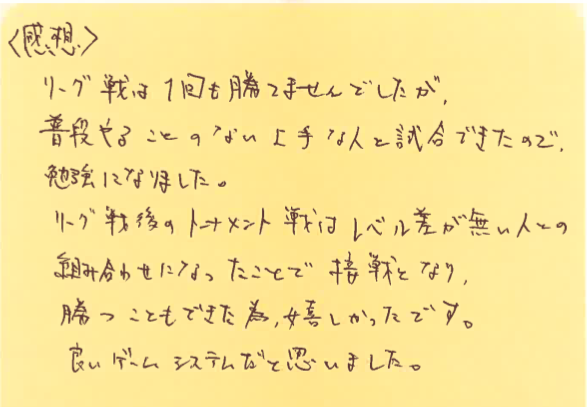 〈感想〉
リーグ戦は1回も勝てませんでしたが、
普段やることのない上手な人と試合できたので、
勉強になりました。
リーグ戦後のトーナメント戦はレベル差が無い人との
組み合わせになったことで接戦となり、
勝つこともできた為、嬉しかったです。
良いゲームシステムだと思いました。